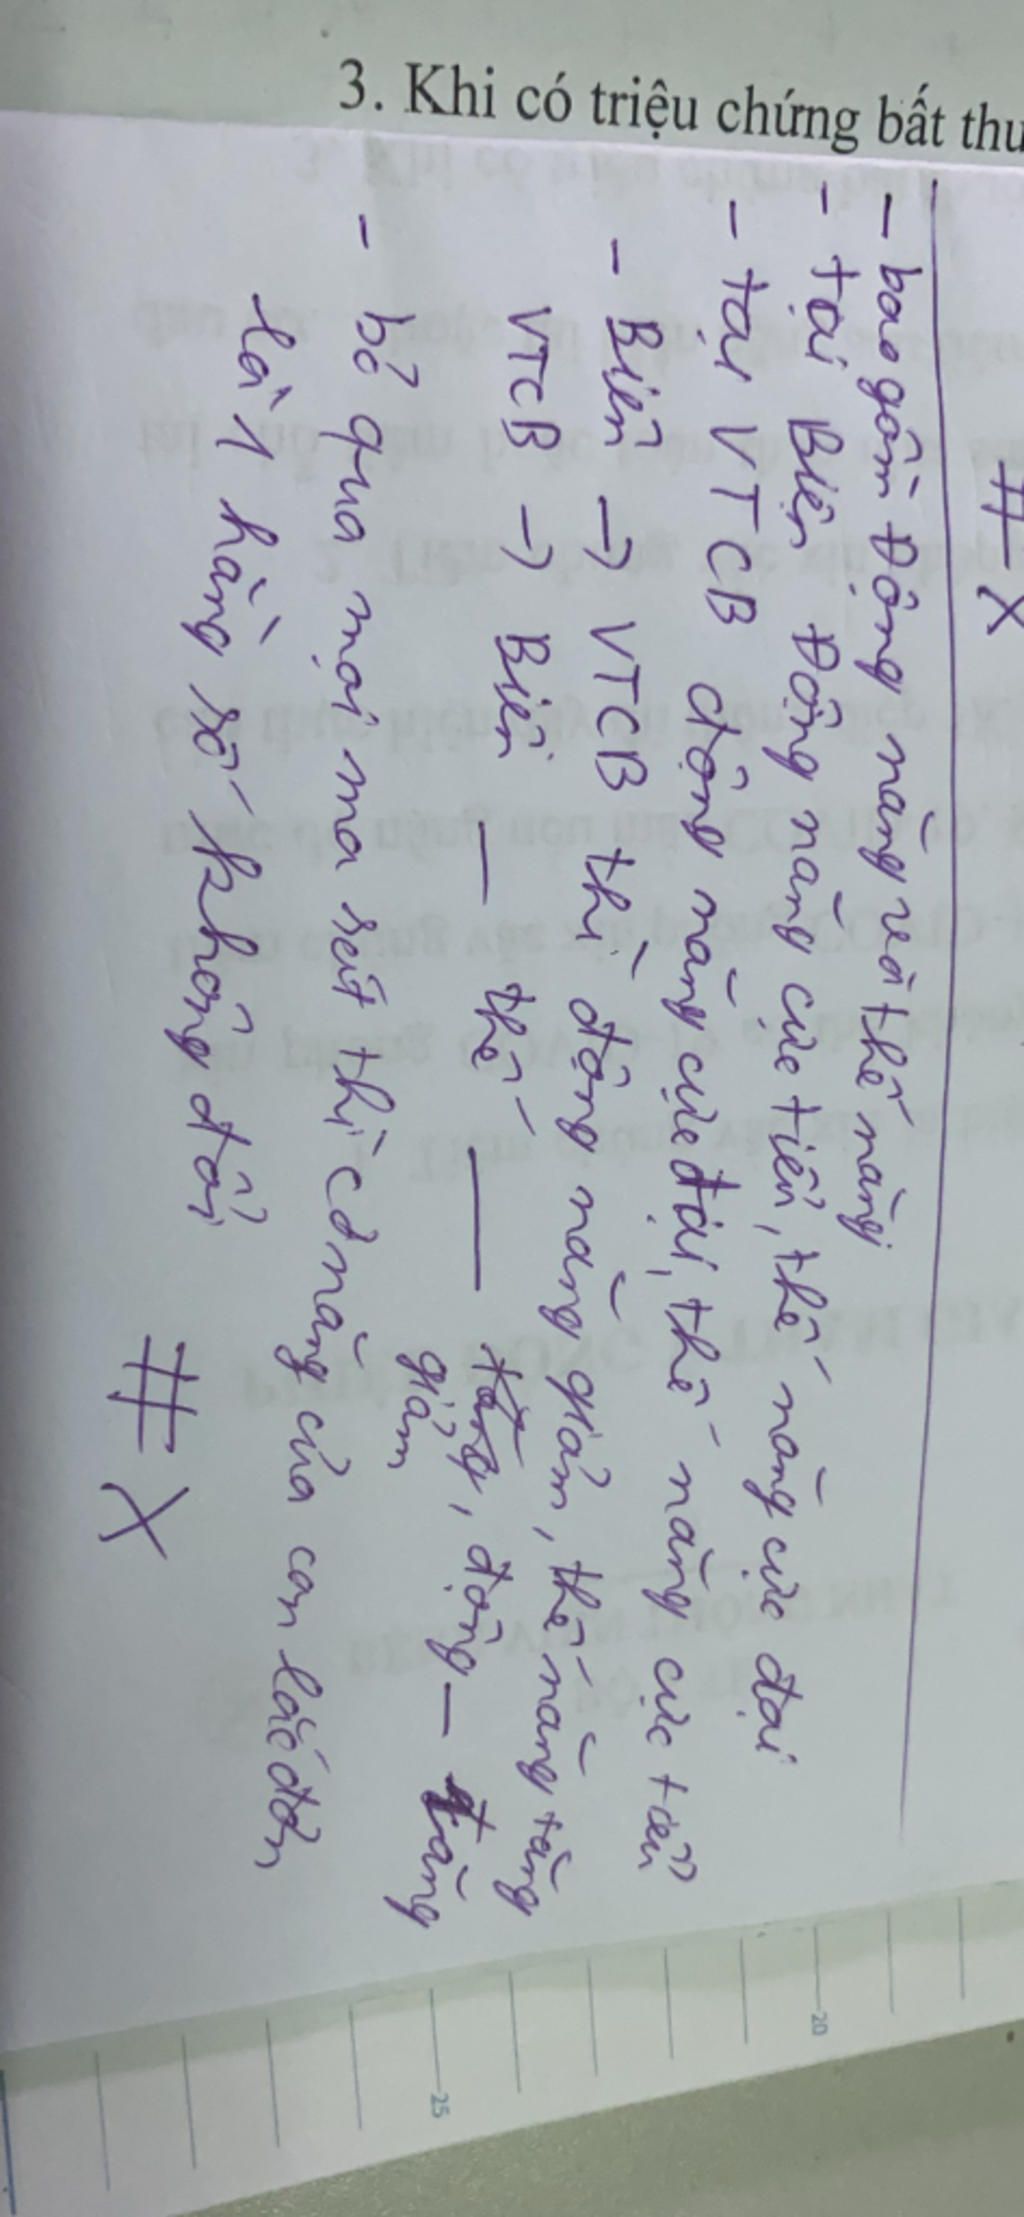 3. Khi có triệu chứng bất thư
# X
- bao gồm Động năng và thế năng
- tại Biên Động năng cực tiểu, thế năng cực đại
- tại VTCB động năng cực đại, thế năng cực tiểu
- Biên → VTCB thì động năng giảm, thế năng tăng
VTCB → Biên — thế — tăng, động — tăng
giảm
- bỏ qua mọi ma sát thì cơ năng của con lắc đơn
là 1 hằng số không đổi
# X
20
25